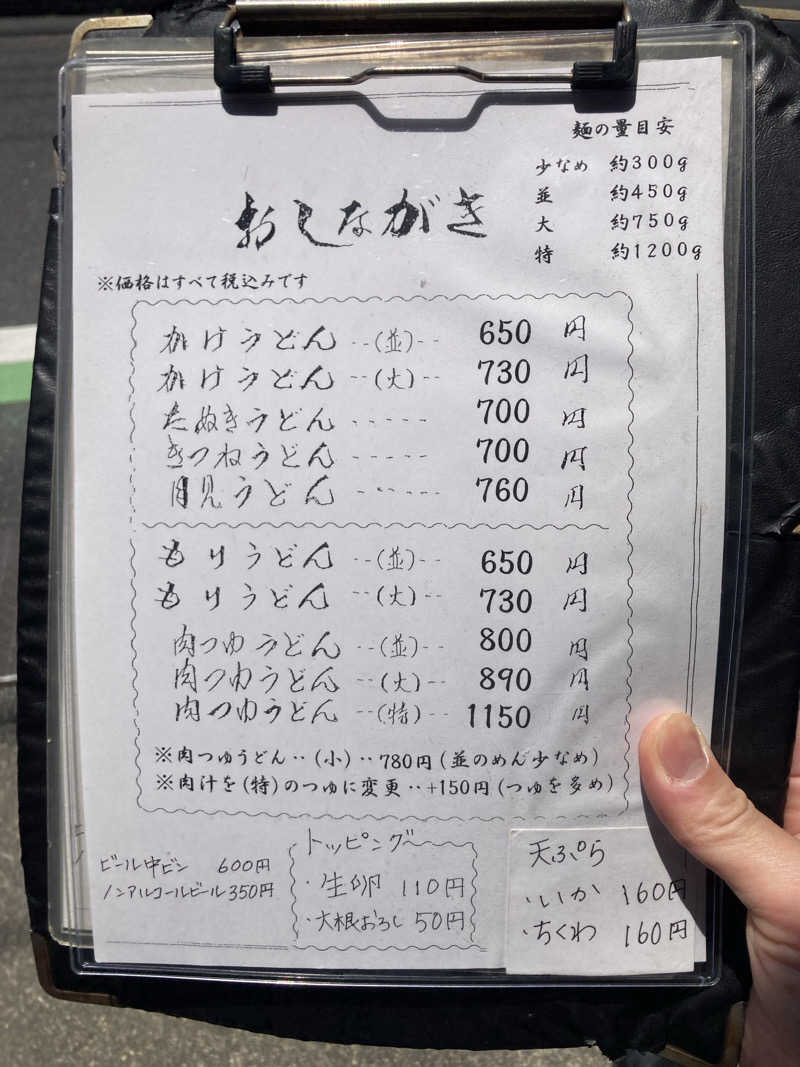 麺の量目安
少なめ 約300g
並 約450g
大 約750g
特 約1200g
おしながき
※価格はすべて税込みです
かけうどん --(並)-- 650 円
かけうどん --(大)-- 730 円
たぬきうどん ----- 700 円
きつねうどん ----- 700 円
月見うどん ----- 760 円
もりうどん --(並)-- 650 円
もりうどん --(大)-- 730 円
肉つゆうどん --(並)-- 800 円
肉つゆうどん --(大)-- 890 円
肉つゆうどん --(特)-- 1150 円
※肉つゆうどん‥(小)‥780円(並のめん少なめ)
※肉汁を(特)のつゆに変更‥+150円(つゆを多め)
ビール中ビン 600円
ノンアルコールビール 350円
トッピング
・生卵 110円
・大根おろし 50円
天ぷら
・いか 160円
・ちくわ 160円